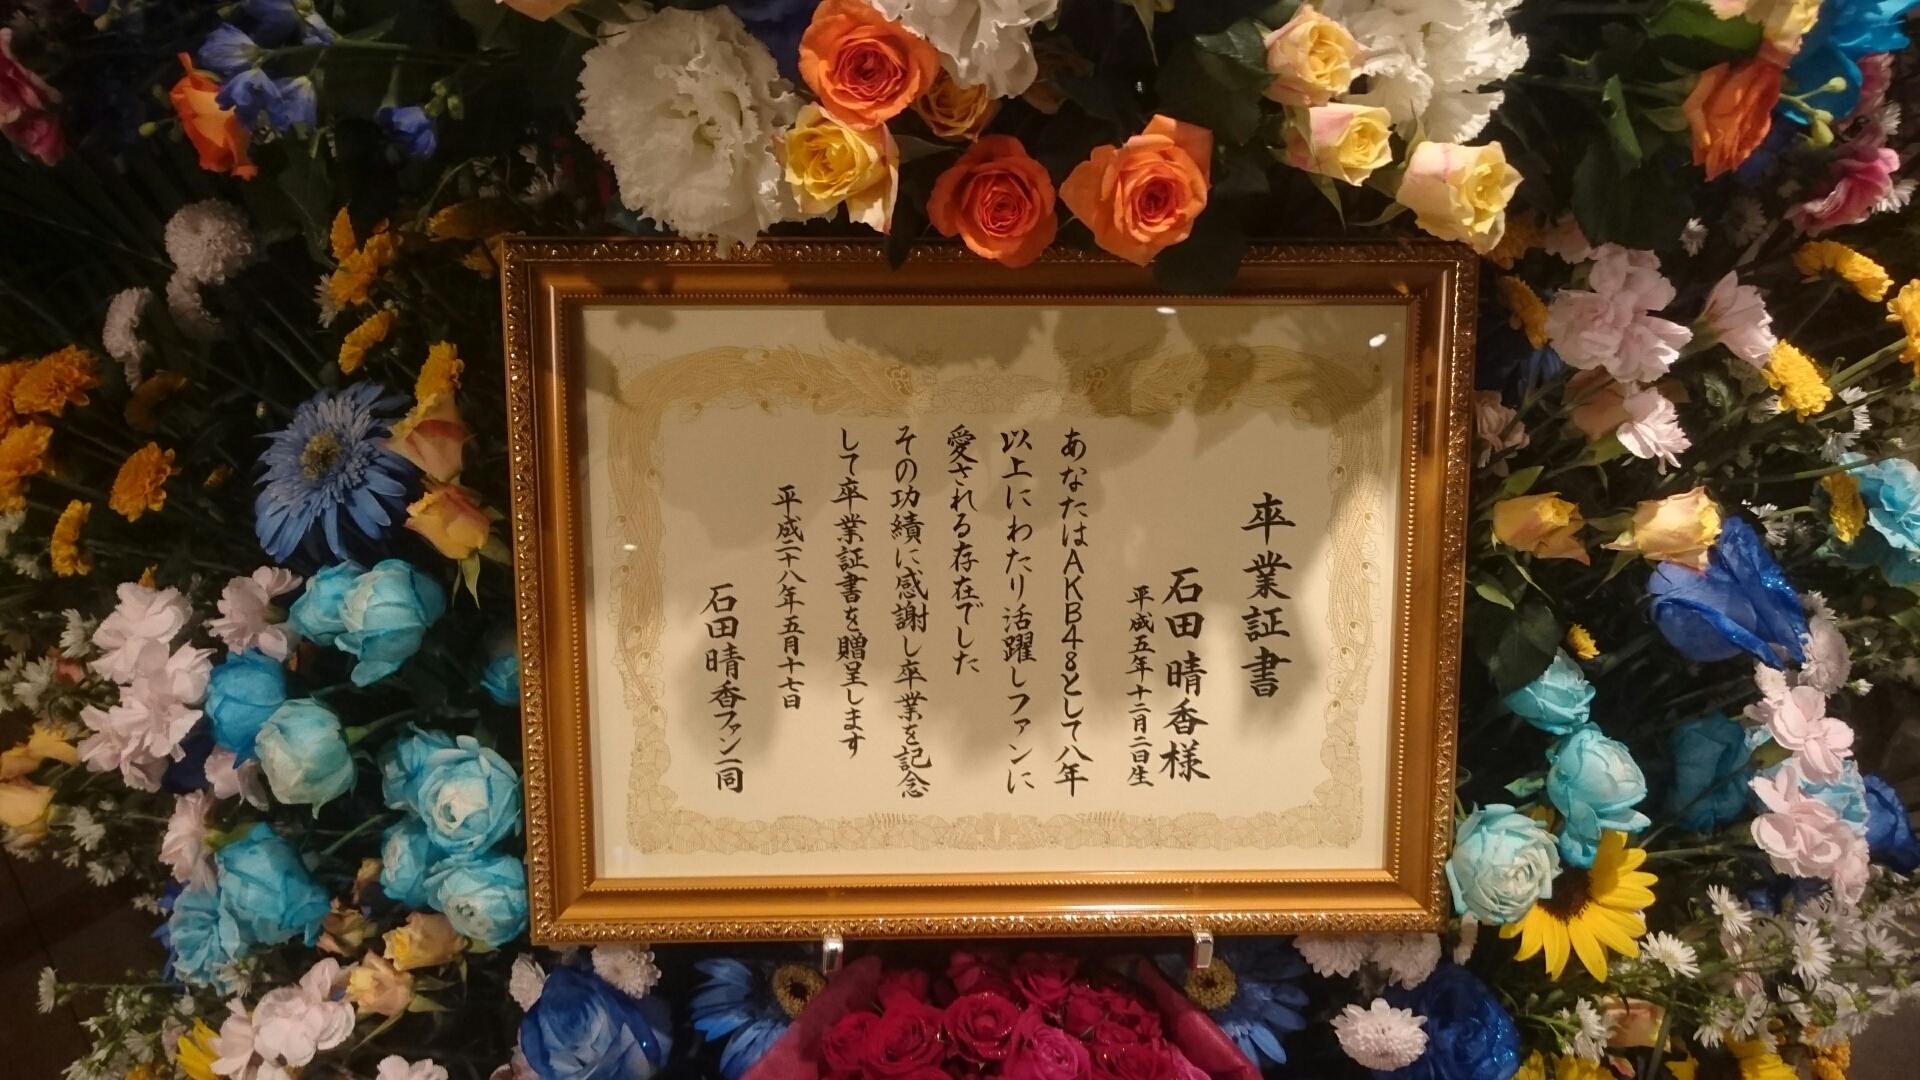 卒業証書
石田晴香様
平成五年十二月二日生
あなたはAKB48として八年
以上にわたり活躍しファンに
愛される存在でした
その功績に感謝し卒業を記念
して卒業証書を贈呈します
平成二十八年五月十七日
石田晴香ファン一同